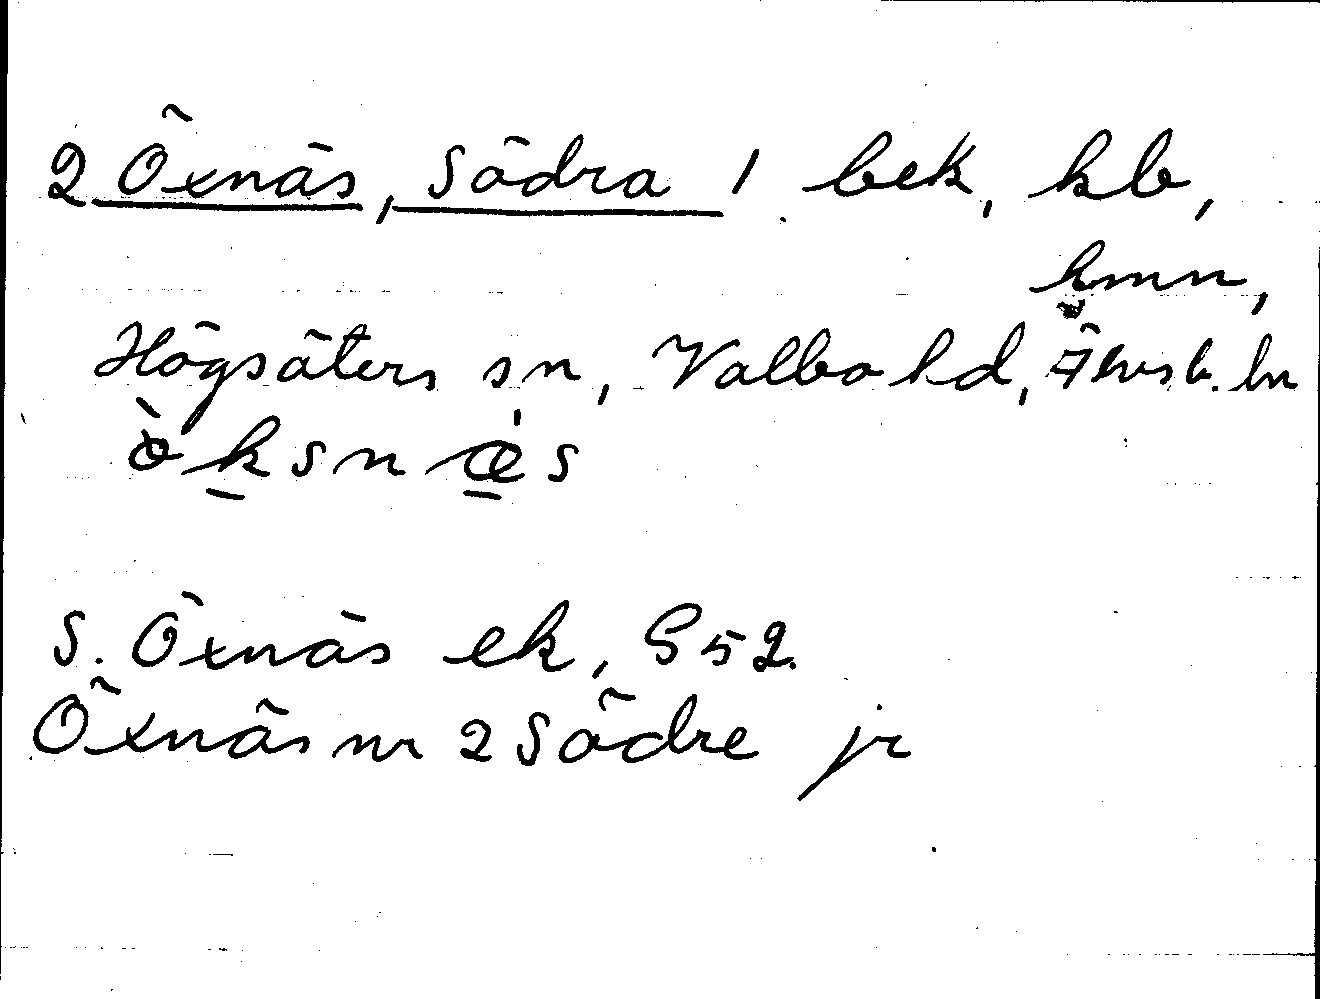 2 Öxnäs, Södra 1 bek, kb,
kmn,
Högsäters sn, Valbo hd, Älvsb. ln
ò̀ksnæ̀s
S. Öxnäs ek, G 52.
Öxnäs nr 2 Södre jr